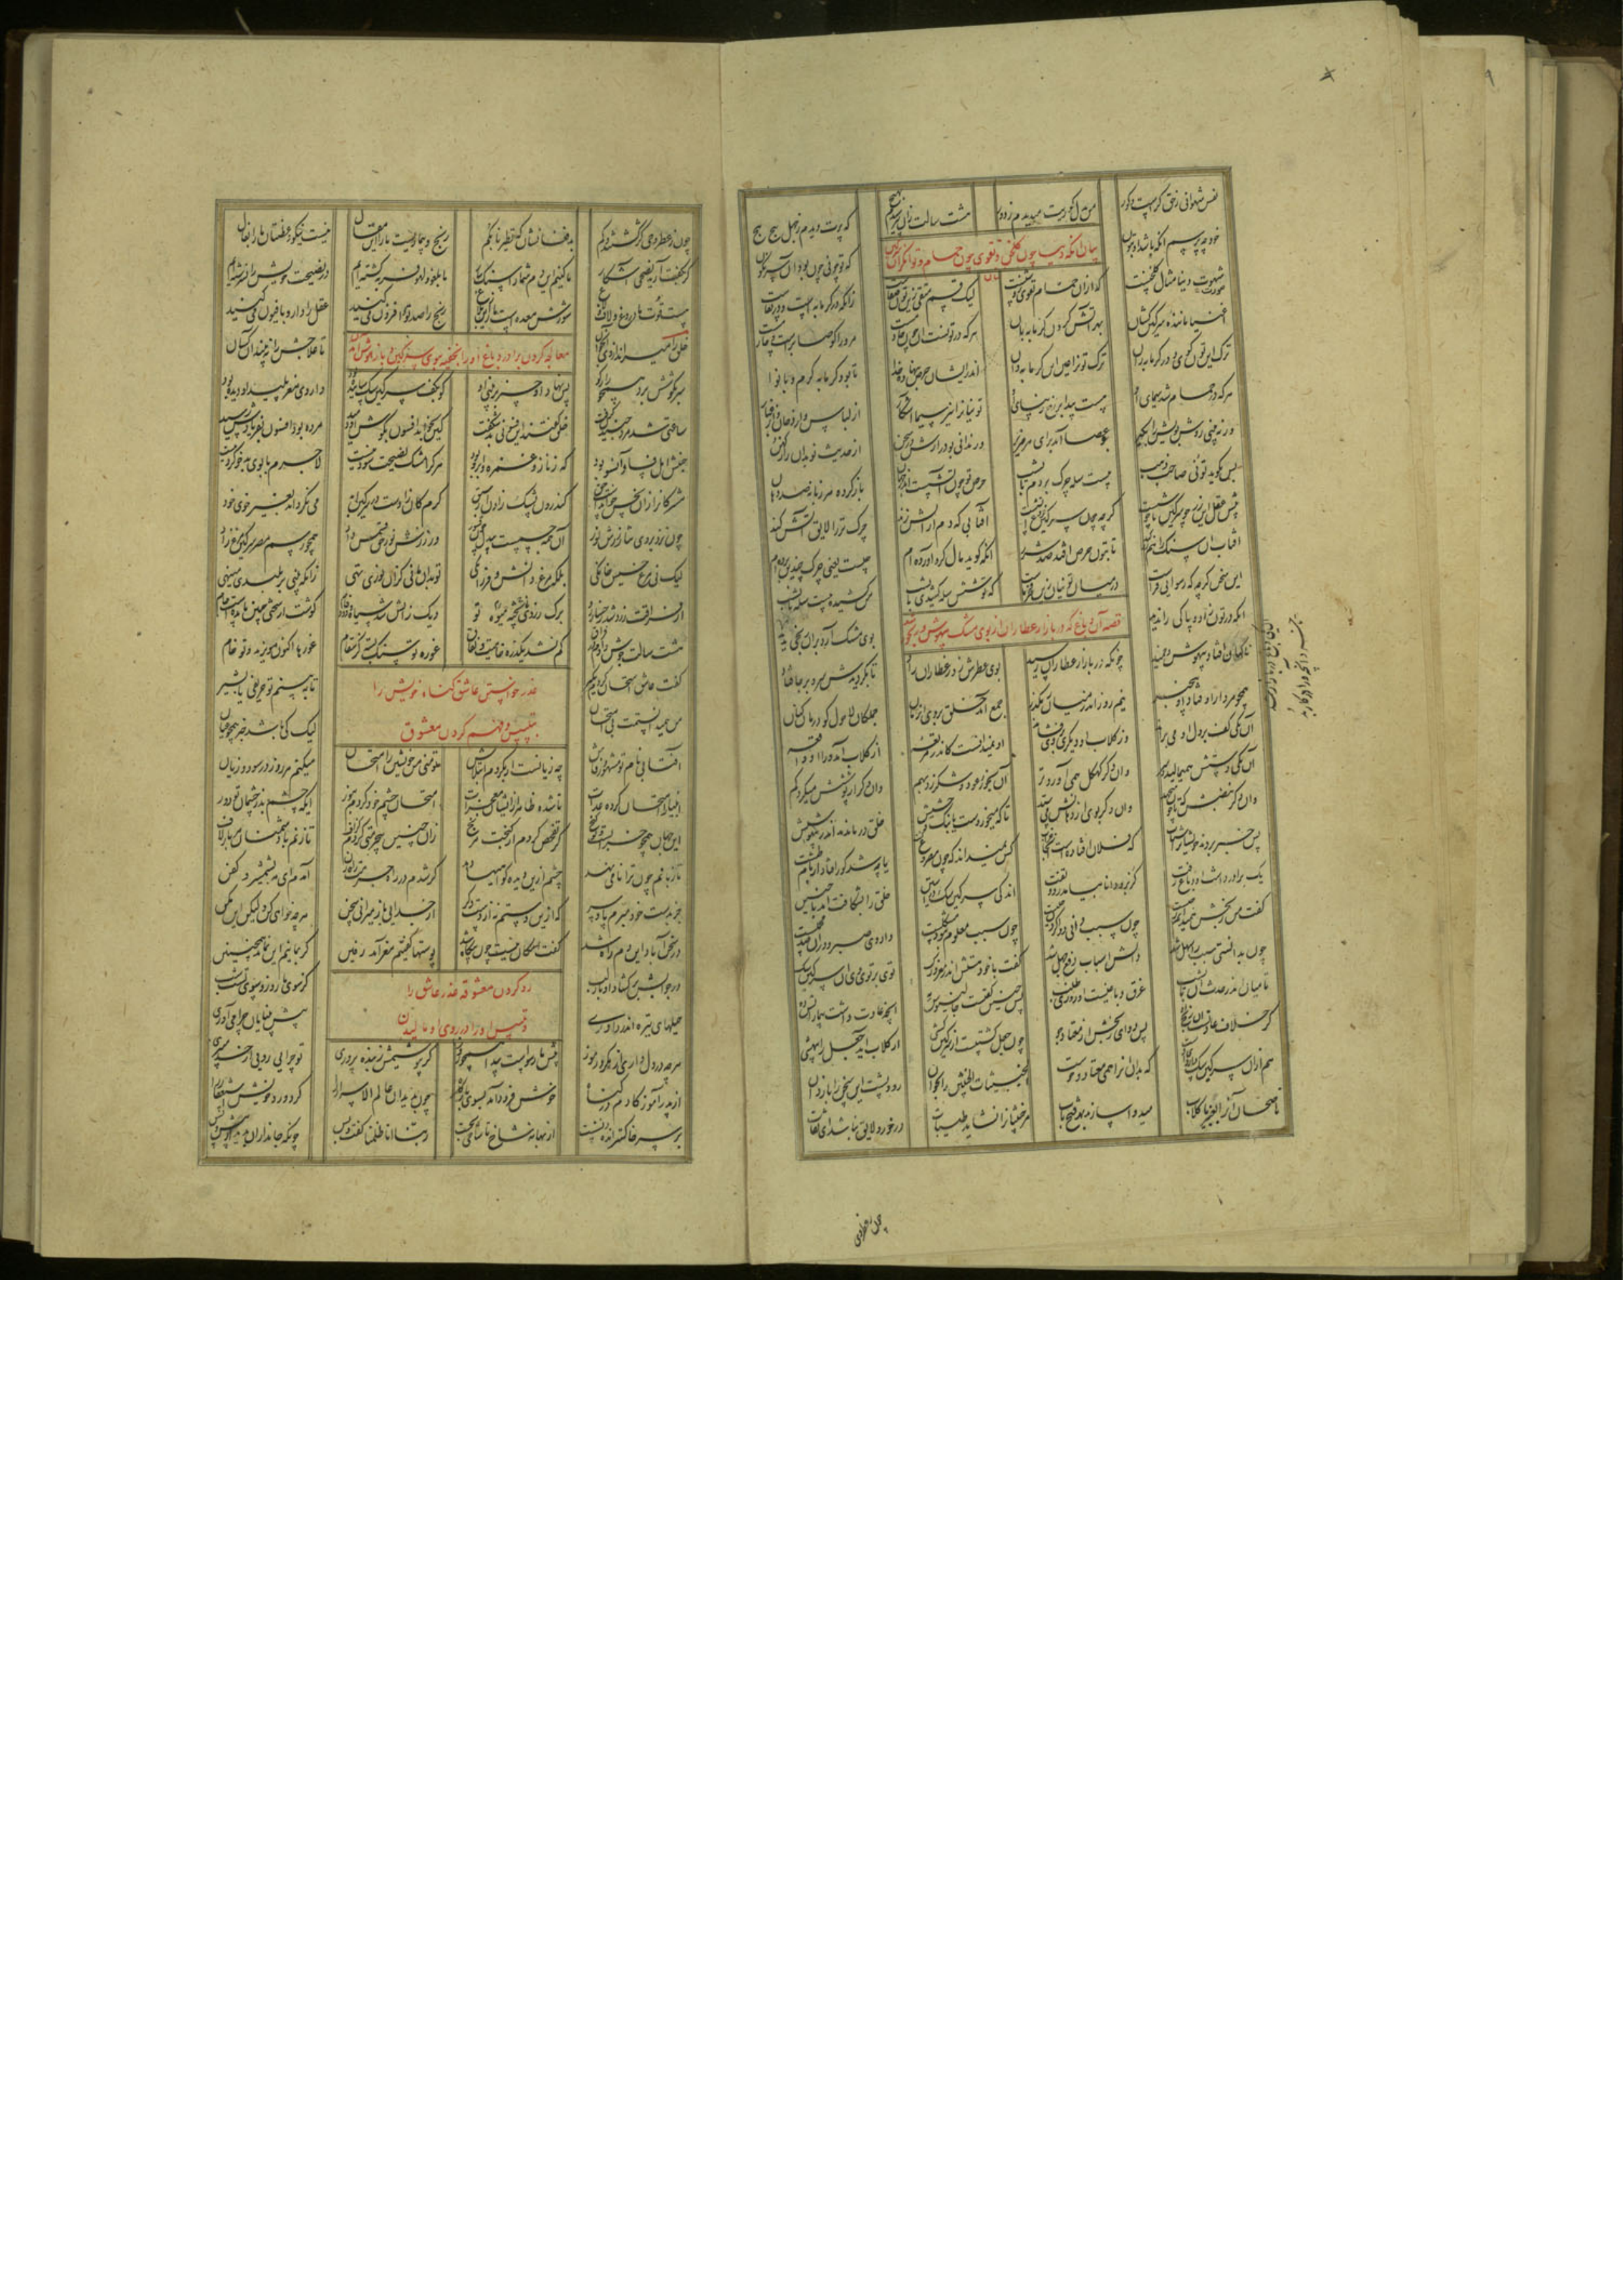 نفس شهوانی ز حق کرست و کور من بدل کوریت میدیدم ز دور هشت سالت زان نپرسیدم بهیچ که پرت دیدم ز جهل پیچ پیچ
خود چه پرسم آنکه باشد او بتون که تو چونی چون بود او سرنگون
بیان آنکه دنیا چون گلخن و تقوی چون حمام و توانگران
شهوت دنیا مثال گلخنست که ازان حمام تقوی روشنست لیک قسم متقی زین تون صفاست زانکه در گرمابه است و در نقاست
اغنیا ماننده سرگین کشان بهر آتش کردن گرمابه بان
ترک این تون گوی و در گرمابه ران ترک تون را عین آن گرمابه دان هرکه در تونست او چون خادمست مرورا کو صابرست و حازمست
هرکه در حمام شد سیمای او هست پیدا بر رخ زیبای او تونیان را نیز سیما آشکار از لباس و از دخان و از غبار
ور نه بینی روش بویش را بگیر بو عصا آمد برای هر ضریر ور نداری بو در آرش در سخن از حدیث نو بدان راز کهن
پس بگوید تونی صاحب ذهب بیست سله چرک بردم تا بشب حرص تو چون آتشست اندر جهان باز کرده هر زبانه صد دهان
پیش عقل این زر چو سرگین ناخوشست گرچه چون سرگین فروغ آتشست آفتابی که دم از آتش زند چرک تر را لایق آتش کند
آفتاب آن سنگ را هم کرد زر تا بتون حرص افتد صد شرر آنکه گوید مال گرد آورده ام چیست یعنی چرک چندین برده ام
این سخن گرچه که رسوایی فزاست در میان تونیان زین فخرهاست که تو شش سله کشیدی تا بشب من کشیدم بیست سله بی کرب
آنکه در تون زاد و پاکی را ندید بوی مشک آرد برو رنجی پدید
قصه آن دباغ که در بازار عطاران از بوی مشک بیهوش و رنجور شد
ناگهان افتاد و بیهوش و خمید چونکه در بازار عطاران رسید بوی عطرش زد ز عطاران راد تا بگردیدش سر و بر جا فتاد
همچو مردار اوفتاد او بیخبر نیم روز اندر میان رهگذر جمع آمد خلق بر وی آن زمان جملگان لاحول گو درمان کنان
آن یکی کف بر دل او می براند وز گلاب آن دیگری بر وی فشاند او نمیدانست کاندر مرتعه از گلاب آمد ورا آن واقعه
آن یکی دستش همی مالید و سر وان دگر کهگل همی آورد تر آن بخور عود و شکر زد بهم وان دگر از پوششش میکرد کم
وان دگر نبضش که تا چون میجهد وان دگر بوی از دهانش می ستد تا که می خوردست یا بنگ و حشیش خلق درماندند اندر بیهشیش
پس خبر بردند خویشان را شتاب که فلان افتاده است آنجا خراب کس نمیداند که چون مصروع گشت یا چه شد کو را فتاد از بام طشت
یک برادر داشت آن دباغ زفت گربز و دانا بیامد زود تفت اندکی سرگین سگ در آستین خلق را بشکافت آمد با حنین
گفت من رنجش همیدانم ز چیست چون سبب دانی دوا کردن جلیست چون سبب معلوم نبود مشکلست داروی رنج و دران صد محملست
چون بدانستی سبب را سهل شد دانش اسباب دفع جهل شد گفت با خود هستش اندر مغز و رگ توی بر تو بوی آن سرگین سگ
تا میان اندر حدث او تا بشب غرق دباغیست او روزی طلب پس چنین گفتست جالینوس مه آنچه عادت داشت بیمار آنش ده
کز خلاف عادتست آن رنج او پس دوای رنجش از معتاد جو چون جعل گشتست از سرگین کشی از گلاب آید جعل را بیهشی
هم ازان سرگین سگ داروی اوست که بدان او را همی معتاد و خوست الخبیثات الخبیثین را بخوان رو و پشت این سخن را باز دان
ناصحان او را بعنبر یا گلاب می دوا سازند بهر فتح باب مر خبیثان را نشاید طیبات درخور و لایق نباشد ای ثقات
چون ز عطر وحی
چون ز عطر وحی کژ گشتند و گم بد فغانشان که تطیرنا بکم رنج و بیماریست ما را این مقال نیست نیکو وعظتان ما را بفال
گر بگفت آرید نصحی آشکار ما کنیم آن دم شما را سنگسار ما بلغو و لهو فربه گشته ایم در نصیحت خویش را نسرشته ایم
هست قوت ما دروغ و لاف و لاغ شورش معده ست ما را زین بلاغ رنج را صد تو و افزون می کنید عقل را دارو بافیون می کنید
معالجه کردن برادر دباغ او را بخفیه ببوی سرگین و باز بهوش آمدن
خلق را میراند از وی آن جوان تا علاجش را نبینند آن کسان
سر بگوشش برد همچون رازگو پس نهاد آن چیز بر بینی او کو بکف سرگین سگ ساییده بود داروی مغز پلید آن دیده بود
ساعتی شد مرد جنبیدن گرفت خلق گفتند این فسونی بد شگفت کین بخواند افسون بگوش او دمید مرده بود افسون بفریادش رسید
جنبش اهل فساد آن سو بود که زنا و غمزه و ابرو بود هر کرا مشک نصیحت سود نیست لاجرم با بوی بد خو کردنیست
مشرکان را زان نجس خواندست حق کاندرون پشک زادند از سبق کرم کو زادست در سرگین ابد می نگرداند بعنبر خوی خود
چون نزد بر وی نثار رش نور او همه جسمست بی دل چون قشور ور ز رش نور حق قسمیش داد همچو رسم مصر سرگین مرغ زاد
لیک نی مرغ خسیس خانگی بلکه مرغ دانش و فرزانگی تو بدان مانی کزان نوری تهی زانکه بینی بر پلیدی می نهی
از فراقت زرد شد رخسار و رو برگ زردی میوه ناپخته تو دیگ ز آتش شد سیاه و دود فام گوشت از سختی چنین ماندست خام
هشت سالت جوش دادم در فراق کم نشد یکذره خامیت و نفاق غوره تو سنگ بسته کز سقام غوره ها اکنون مویزند و تو خام
عذر خواستن عاشق گناه خویش را
بتلبیس و فهم کردن معشوق
گفت عاشق امتحان کردم مگیر تا به بینم تو حریفی یا ستیر
من همیدانستمت بی امتحان لیک کی باشد خبر همچون عیان
آفتابی نام تو مشهور و فاش چه زیانست ار بکردم ابتلاش تو منی من خویشتن را امتحان میکنم هر روز در سود و زیان
انبیا را امتحان کرده عدات تا شده ظاهر ازیشان معجزات امتحان چشم خود کردم بنور ای که چشم بد ز چشمان تو دور
این جهان همچون خرابست و تو گنج گر تفحص کردم از گنجت مرنج زان چنین بی خردگی کردم گزاف تا زنم با دشمنان هر بار لاف
تا زبانم چون ترا نامی نهد چشم ازین دیده گواهیها دهد گر شدم در راه حرمت راه زن آمدم ای مه بشمشیر و کفن
جز بدست خود مبرم پا و سر که ازین دستم نه از دست دگر از جدایی باز میرانی سخن هرچه خواهی کن ولیکن این مکن
در سخن آباد این دم راه شد گفت امکان نیست چون بیگاه شد پوستها گفتیم و مغز آمد دفین گر بمانیم این نماند همچنین
رد کردن معشوقه عذر عاشق را
و تلبیس او را در روی او مالیدن
در جوابش برگشاد آن یار لب کز سوی ما روز و سوی تست شب
حیلهای تیره اندر داوری پیش بینایان چرا می آوری
هرچه در دل داری از مکر و رموز پیش ما رسواست و پیدا همچو روز گر بپوشیمش ز بنده پروری تو چرا بی رویی از حد میبری
از پدر آموز کادم در گناه خوش فرود آمد بسوی پایگاه چون بدید آن عالم الاسرار را کرد درد خویش استغفار را
بر سر خاکستر انده نشست از بهانه شاخ تا شاخی بجست ربنا انا ظلمنا گفت و بس چونکه جانداران بدید از پیش و پس